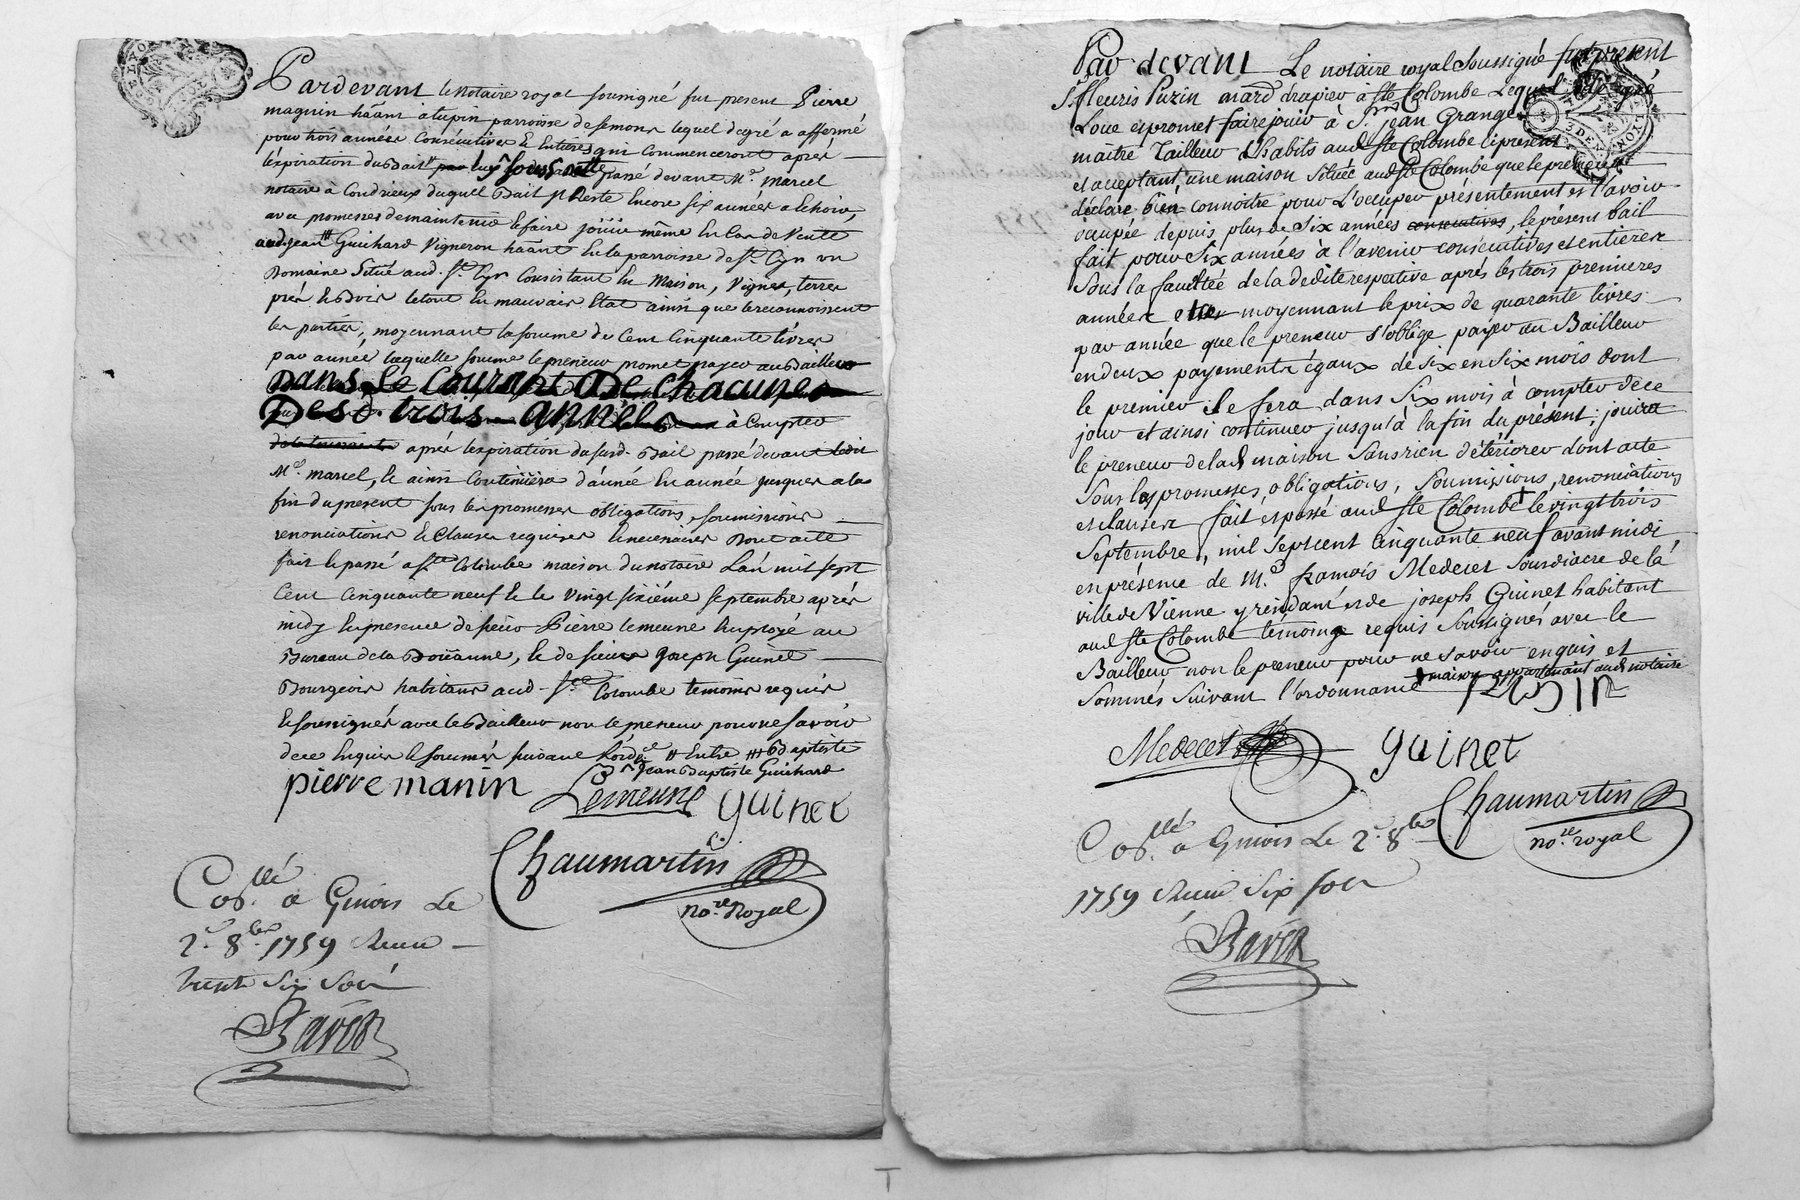 Pardevant le notaire royal soussigné fut present Pierre
magnin hãant a lupin parroisse de semons lequel de gré a affermé
pour trois années Consécutives & Entieres qui Commenceront après
l'expiration du Bail passé devant Me. Marcel
notaire a Condrieux duquel Bail il Reste Encore six années a Echoir,
avec promesses de maintenir & faire jouir même En Cas de Vente
aud. jean Guichard Vigneron hãant En la parroisse de St. Cyr un
Domaine Situé aud. St. Cyr Consistant En Maison, Vignes, terres
prés & Bois le tout En mauvais Etat ainsi que le reconnoissent
les parties, moyennant la somme de Cent Cinquante livres
par année laquelle somme le preneur promet payer au Bailleur
Dans Le Courant De chacunes
Des d. trois années à Compter
après l'expiration du susd. Bail passé devant ledit
Me. marcel, & ainsi Continüera d'année En année jusques a la
fin du present sous les promesses obligations, soumissions
renonciations & Clauses requises & necessaires Dont acte
fait & passé a Ste Colombe maison du notaire L'an mil sept
Cent Cinquante neuf & le vingt sixiéme septembre après
midy En presence de sieur Pierre Lemeune Employé au
Bureau de la Doüanne, & de sieur Joseph Guinet
Bourgeois habitans aud. Ste Colombe temoins requis
& soussignés avec le Bailleur non le preneur pour ne savoir
de ce Enquis & sommés suivant l'ordce # Entre ### Baptiste
jean Baptiste Guichard
pierre manin Lemeune guinet
Chaumartin
nore. Royal
Collé a Givors Le
2e. 8bre. 1759 Reçu
trente six sols
Par devant Le notaire royal Soussigné fut present
Sr. fleuris Puzin mard drapier à Ste Colombe Lequel de gré
Loue et promet faire jouir à Sr. jean Grange
maître Tailleur d'habits aud. Ste Colombe ici présent
et acceptant, une maison Située aud. Ste Colombe que le preneur
déclare bien connoître pour L'occuper présentement et l'avoir
occupée depuis plus de Six années consecutives, le présent bail
fait pour Six années à l'avenir consécutives et entieres
Sous la faculté de la dedite respective après les trois premieres
années moyennant le prix de quarante livres
par année que le preneur s'oblige payer au Bailleur
en deux payements égaux de Six en Six mois dont
le premier Se fera dans Six mois à compter de ce
jour et ainsi continuer jusqu'à la fin du présent; jouira
le preneur de lad. maison Sans rien détériorer dont acte
Sous les promesses, obligations, Soumissions, renonciations
et clauses fait et passé aud. Ste Colombe le vingt trois
Septembre, mil Sept cent Cinquante neuf avant midi
en présence de Me. françois Medecet Soudiacre de la
ville de Vienne y résidant et de joseph Guinet habitant
aud. Ste Colombe témoins requis Soussignés avec le
Bailleur non le preneur pour ne savoir enquis et
Sommés Suivant l'ordonnance maison appartenant aud. notaire
PUSIN
Medecet guinet
Chaumartin
nore. royal
Collé a Givors Le 2e. 8bre
1759 Reçu Six sols